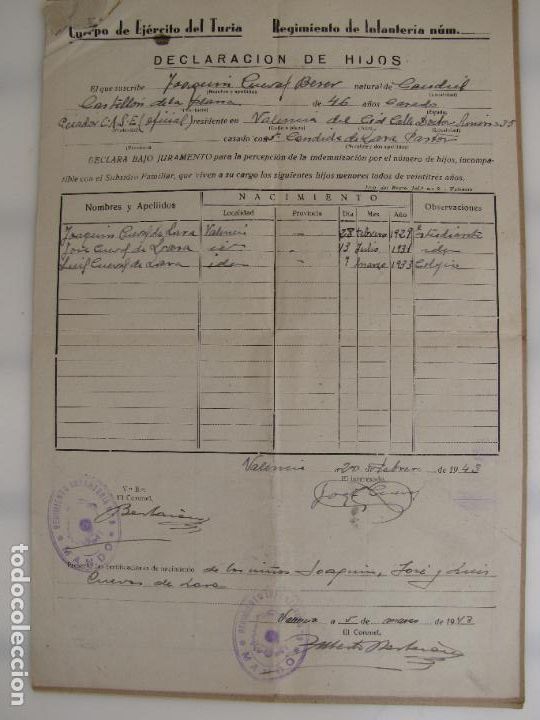 Cuerpo de Ejército del Turia Regimiento de Infantería núm.
DECLARACION DE HIJOS
El que suscribe Joaquin Cuevas natural de Caudiel
(Nombre y apellidos) (Localidad)
Castellón de la plana de 46 años Casado
(Provincia) (Estado)
C.A.S.E. (oficial) residente en Valencia del Cid Calle Doctor 35
(Calle o plaza) (Localidad)
casado con D.ª Candida de Lara Pastor
(Provincia) (Nombre y dos apellidos)
DECLARA BAJO JURAMENTO para la percepción de la indemnización por el número de hijos, incompa-
tible con el Subsidio Familiar, que viven a su cargo los siguientes hijos menores todos de veintitrés años.
Nombres y Apellidos NACIMIENTO Observaciones
Localidad Provincia Día Mes Año
Joaquin Cuevas de Lara Valencia 28 febrero 1929 Estudiante
José Cuevas de Lara id 13 Julio 1931 idem
Luis Cuevas de Lara idem 9 marzo 1933 Colegio
Valencia 20 de febrero de 1943
V.º B.º El interesado,
El Coronel,
REGIMIENTO INFANTERIA
MANDO
certificaciones de nacimiento de los niños Joaquin, José y Luis
Cuevas de Lara
Valencia a 5 de marzo de 1943
El Coronel,
REGIMIENTO INFANTERIA
MANDO
todocoleccion.net